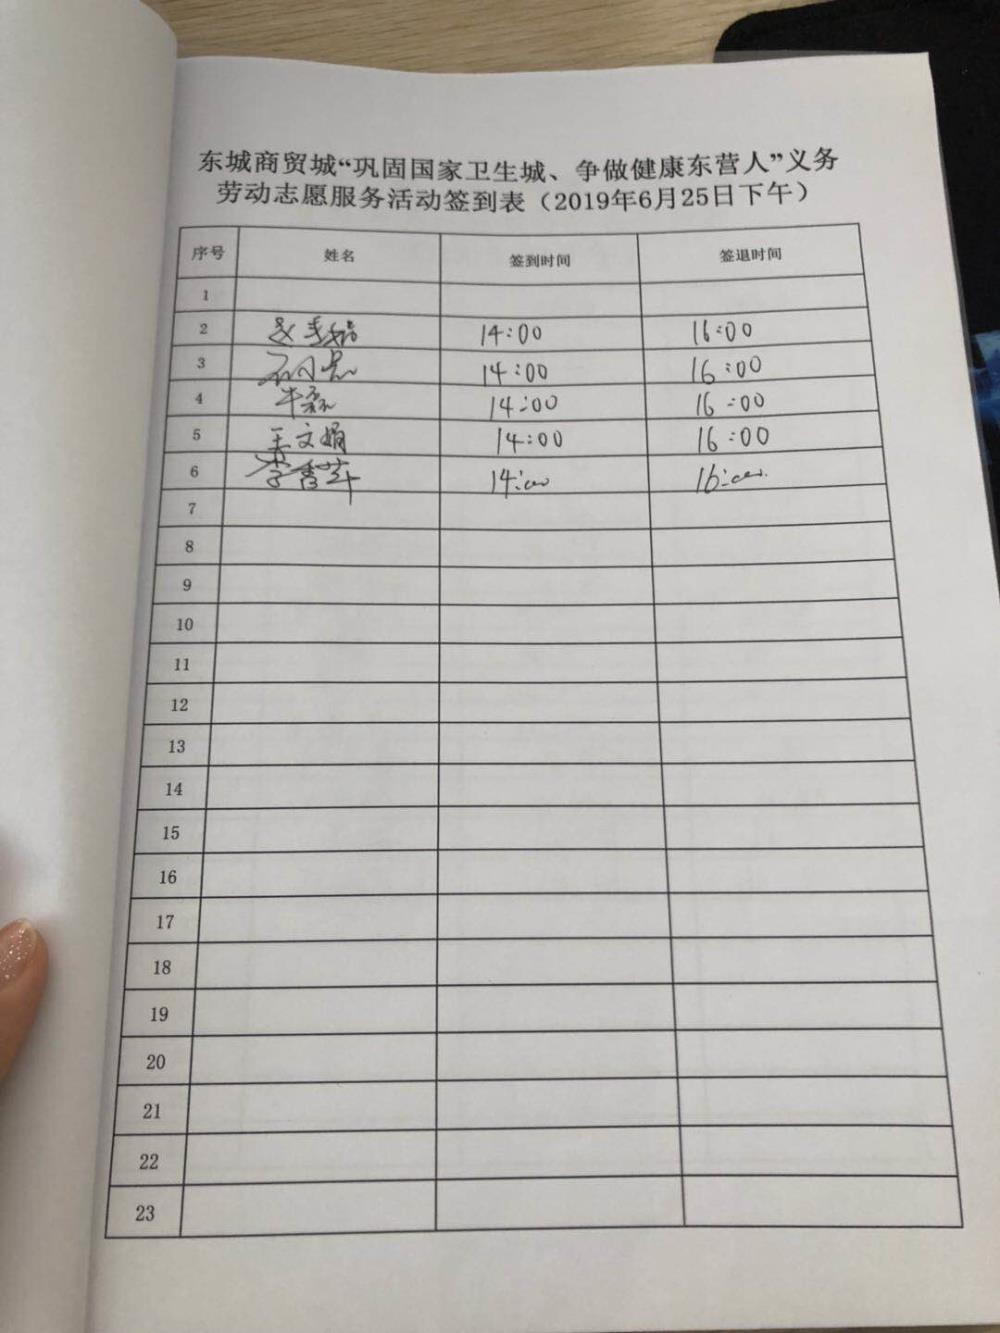 东城商贸城“巩固国家卫生城、争做健康东营人”义务
劳动志愿服务活动签到表（2019年6月25日下午）
序号 姓名 签到时间 签退时间
1
2 14:00 16:00
3 14:00 16:00
4 牛磊 14:00 16:00
5 王文娟 14:00 16:00
6 李香萍 14:00 16:00
7
8
9
10
11
12
13
14
15
16
17
18
19
20
21
22
23